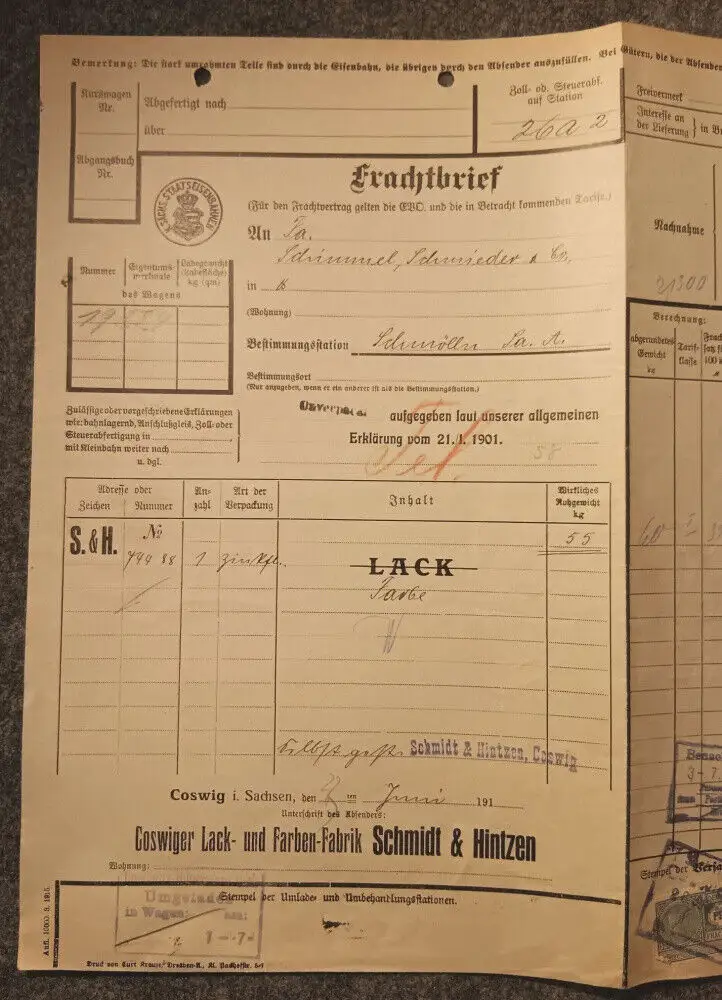 Bemerkung: Die stark umrahmten Teile sind durch die Eisenbahn, die übrigen durch den Absender auszufüllen. Bei Gütern, die der Absender
Kurswagen
Nr.
Abgefertigt nach
über
Abgangsbuch
Nr.
Zoll- od. Steuerabf.
auf Station
26a 2
Freivermerk
Interesse an
der Lieferung } in
Nachnahme
K. SÄCHS. STAATSEISENBAHNEN
Frachtbrief
(Für den Frachtvertrag gelten die EVO. und die in Betracht kommenden Tarife.)
An Fa.
Schimmel, Schmieder & Co.
in
(Wohnung)
Bestimmungsstation Schmölln Sa. A.
Bestimmungsort
(Nur anzugeben, wenn er ein anderer ist als die Bestimmungsstation.)
Nummer
Eigentums-
merkmale
Ladegewicht
(Ladefläche)
kg (qm)
des Wagens
19
Berechnung:
abgerundetes
Gewicht
kg
Tarif-
klasse
Zulässige oder vorgeschriebene Erklärungen
wie: bahnlagernd, Anschlußgleis, Zoll- oder
Steuerabfertigung in
mit Kleinbahn weiter nach
u. dgl.
Unverpackt aufgegeben laut unserer allgemeinen
Erklärung vom 21./I. 1901.
58
Adresse oder
Zeichen Nummer
An-
zahl
Art der
Verpackung
Inhalt
Wirkliches
Rohgewicht
kg
S. & H.
№
74488
1
55
60
LACK
Farbe
Selbst gest. Schmidt & Hintzen, Coswig
Coswig i. Sachsen, den ten Juni 191
Unterschrift des Absenders:
Coswiger Lack- und Farben-Fabrik Schmidt & Hintzen
Wohnung:
Stempel der Umlade- und Umbehandlungsstationen.
Umgeladen
in Wagen:
1 -7-
Aufl. 10000. 3. 1915.
Druck von Curt Krause, Dresden-N., Kl. Packhofstr. 5-7